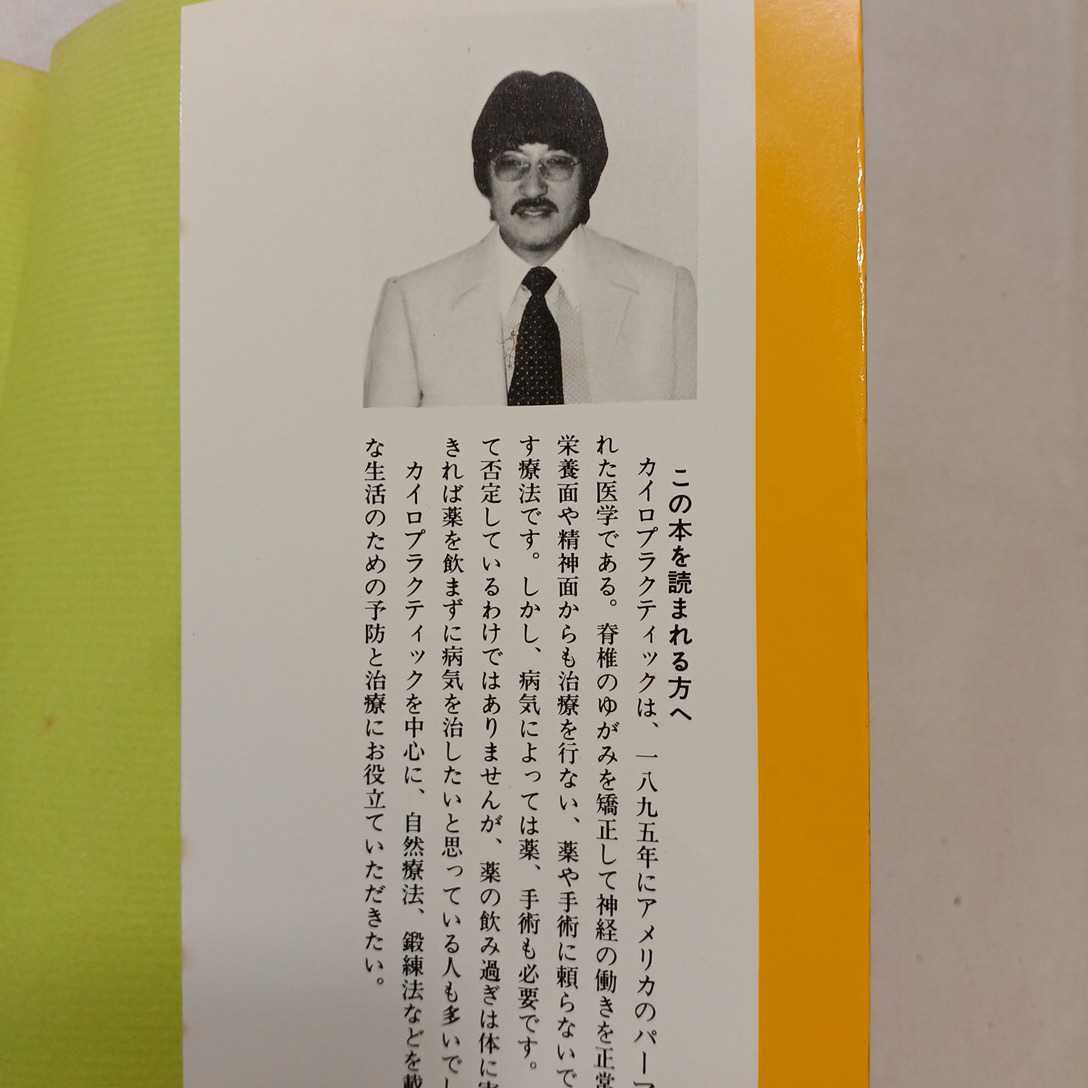 この本を読まれる方へ
カイロプラクティックは、一八九五年にアメリカのパーマ
れた医学である。脊椎のゆがみを矯正して神経の働きを正常
栄養面や精神面からも治療を行ない、薬や手術に頼らないで
す療法です。しかし、病気によっては薬、手術も必要です。
て否定しているわけではありませんが、薬の飲み過ぎは体に害
きれば薬を飲まずに病気を治したいと思っている人も多いでし
カイロプラクティックを中心に、自然療法、鍛練法などを載
な生活のための予防と治療にお役立ていただきたい。